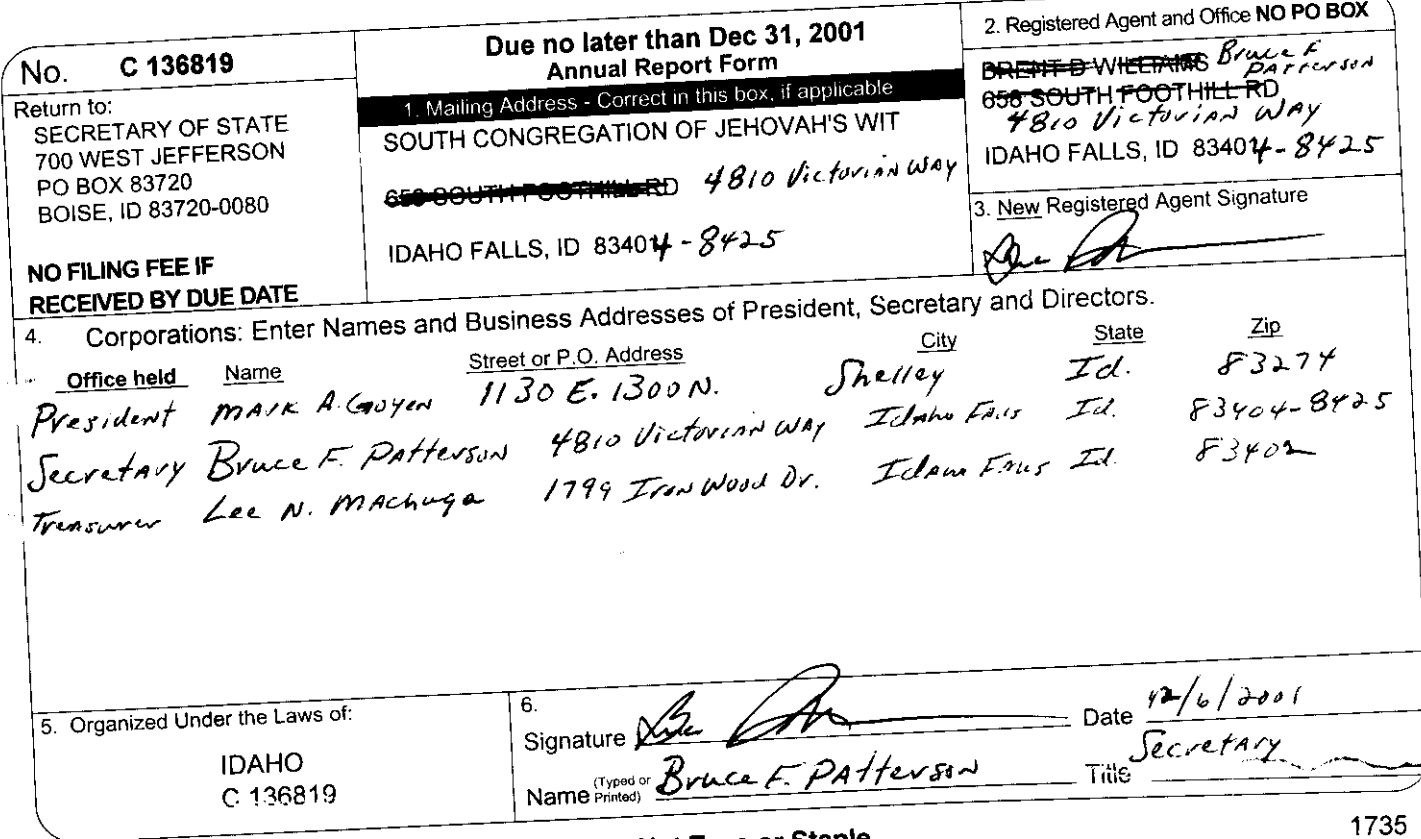 No. C 136819
Return to:
SECRETARY OF STATE
700 WEST JEFFERSON
PO BOX 83720
BOISE, ID 83720-0080
NO FILING FEE IF
RECEIVED BY DUE DATE
Due no later than Dec 31, 2001
Annual Report Form
1. Mailing Address - Correct in this box, if applicable
SOUTH CONGREGATION OF JEHOVAH'S WIT
658 SOUTH FOOTHILL RD 4810 Victorian Way
IDAHO FALLS, ID 83404-8425
2. Registered Agent and Office NO PO BOX
BRENT D WILLIAMS Bruce F
Patterson
658 SOUTH FOOTHILL RD
4810 Victorian Way
IDAHO FALLS, ID 83404-8425
3. New Registered Agent Signature
4. Corporations: Enter Names and Business Addresses of President, Secretary and Directors.
Office held Name Street or P.O. Address City State Zip
President Mark A. Goyen 1130 E. 1300 N. Shelley Id. 83274
Secretary Bruce F. Patterson 4810 Victorian Way Idaho Falls Id. 83404-8425
Treasurer Lee N. Machuga 1799 Iron Wood Dr. Idaho Falls Id. 83402
5. Organized Under the Laws of:
IDAHO
C 136819
6.
Signature Date 12/6/2001
Name (Typed or Printed) Bruce F. Patterson Title Secretary
or Staple
1735